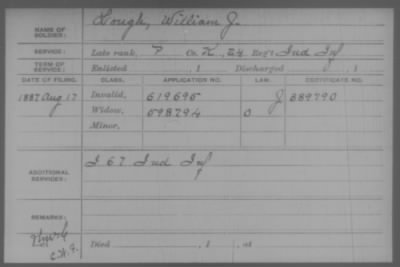 NAME OF SOLDIER: Gough, William J.
SERVICE: Late rank, P Co. K, 24 Reg't Ind Inf
TERM OF SERVICE: Enlisted , 1 Discharged , 1
DATE OF FILING. CLASS. APPLICATION NO. LAW. CERTIFICATE NO.
1887 Aug 17 Invalid, 619695 J 389790
Widow, 598794 O
Minor,
ADDITIONAL SERVICES: I 67 Ind Inf
REMARKS:
Died , 1 , at